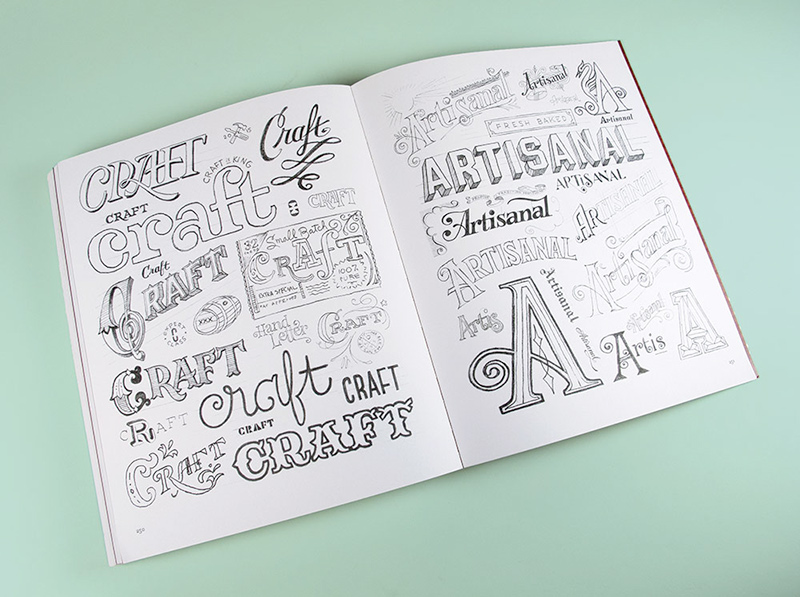 CRAFT
Craft
CRAFT IS KING
CRAFT
craft
CRAFT
Craft
CRAFT
32
Small Batch
CRAFT
EXTRA SPECIAL
100%
PURE
XXX
Hand
Letter
CRAFT
CRAFT
craft
CRAFT
CRAFT
CRAFT
CRAFT
CRAFT
250
Artisanal
Artisanal
A
Artisanal
FRESH BAKED
ARTISANAL
ARTISANAL
Artisanal
Artisanal
ARTISANAL
Artisanal
Artisanal
A
Artis
Artis
A
251